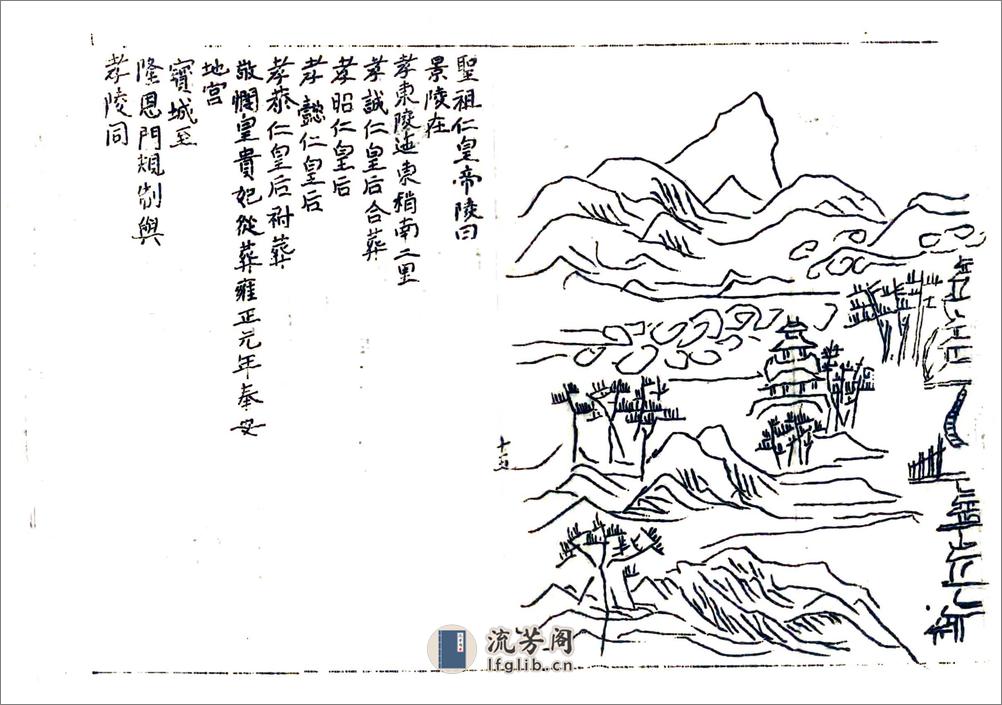 聖祖仁皇帝陵曰
景陵在
孝東陵迤東稍南二里
孝誠仁皇后合葬
孝昭仁皇后
孝懿仁皇后
孝恭仁皇后祔葬
敬憫皇貴妃從葬雍正元年奉安
地宮
寶城至
隆恩門規制與
孝陵同
流芳阁
lfglib.cn